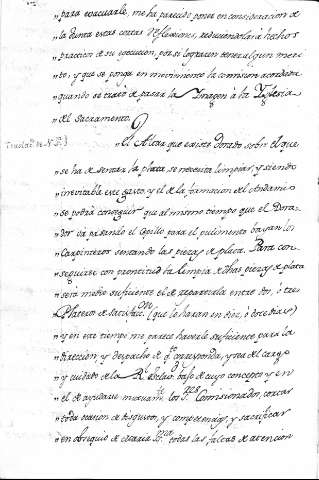 „para evacuarle, me ha parecido poner en consideracion de
„la Junta estas cortas reflexiones, reduciendola à hechos
„practico de su egecucion, por si lograren tener algun meri
„to, y que se ponga en movimiento la comision acordada
„quando se trató de pasar la Ymagen à la Yglesia
„del Sacramento.
Traslac.ⁿ de N.S.ª}
„El Altar que existe Dorado sobre el que
„se ha de sentar la plata, se necesita limpiar, y siendo
„inevitable este gasto, y el de la formacion del Andamio
„se podrá conseguir que al mismo tiempo que el Dora
„dor vá pasando el cepillo para el pulimento vayan los
„Carpinteros sentando las piezas de plata. Para con
„seguirse con prontitud la limpia de dhas piezas de plata
„será medio suficiente el de repararla entre dos, ó tres
„Plateros de (que lo harán en diez, ó doce dias)
„y en este tiempo me parece haverle suficiente para la
„direccion, y despacho de q.ᵉ corresponda, y sea del cargo
„y cuidado de la R.ˡ Esclav.ᵈ bajo de cuyo concepto y en
„el de ayudarse mutuam.ᵗᵉ los S.ʳᵉˢ Comisionados, cortar
„toda ocasion de disgusto, y competencias, y sacrificar
„en obsequio de Maria SS.ᵐᵃ todas las faltas de atencion